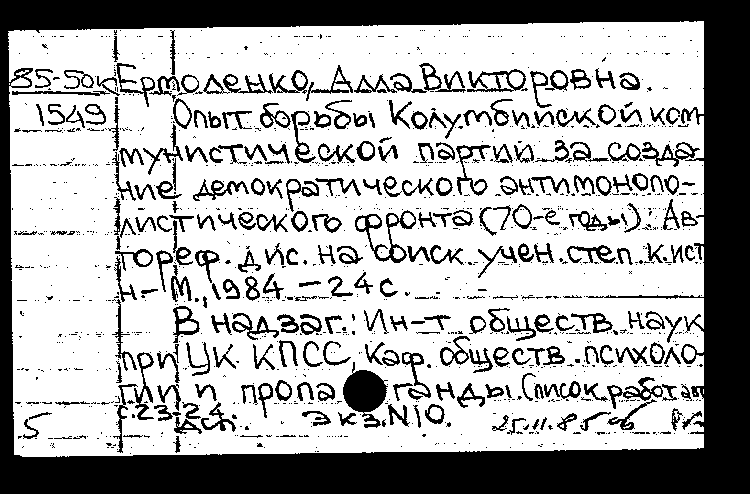 85-50к Ермоленко, Алла Викторовна.
1549 Опыт борьбы Колумбийской ком-
мунистической партии за созда-
ние демократического антимонопо-
листического фронта (70-е годы): Ав-
тореф. дис. на соиск. учен. степ. к. ист.
н.- М., 1984. - 24 с.
В надзаг.: Ин-т обществ. наук
при ЦК КПСС, Каф. обществ. психоло-
гии и пропаганды. Список работ авт.
с. 23-24.
5 ДСП. Экз. N10. 25.11.85